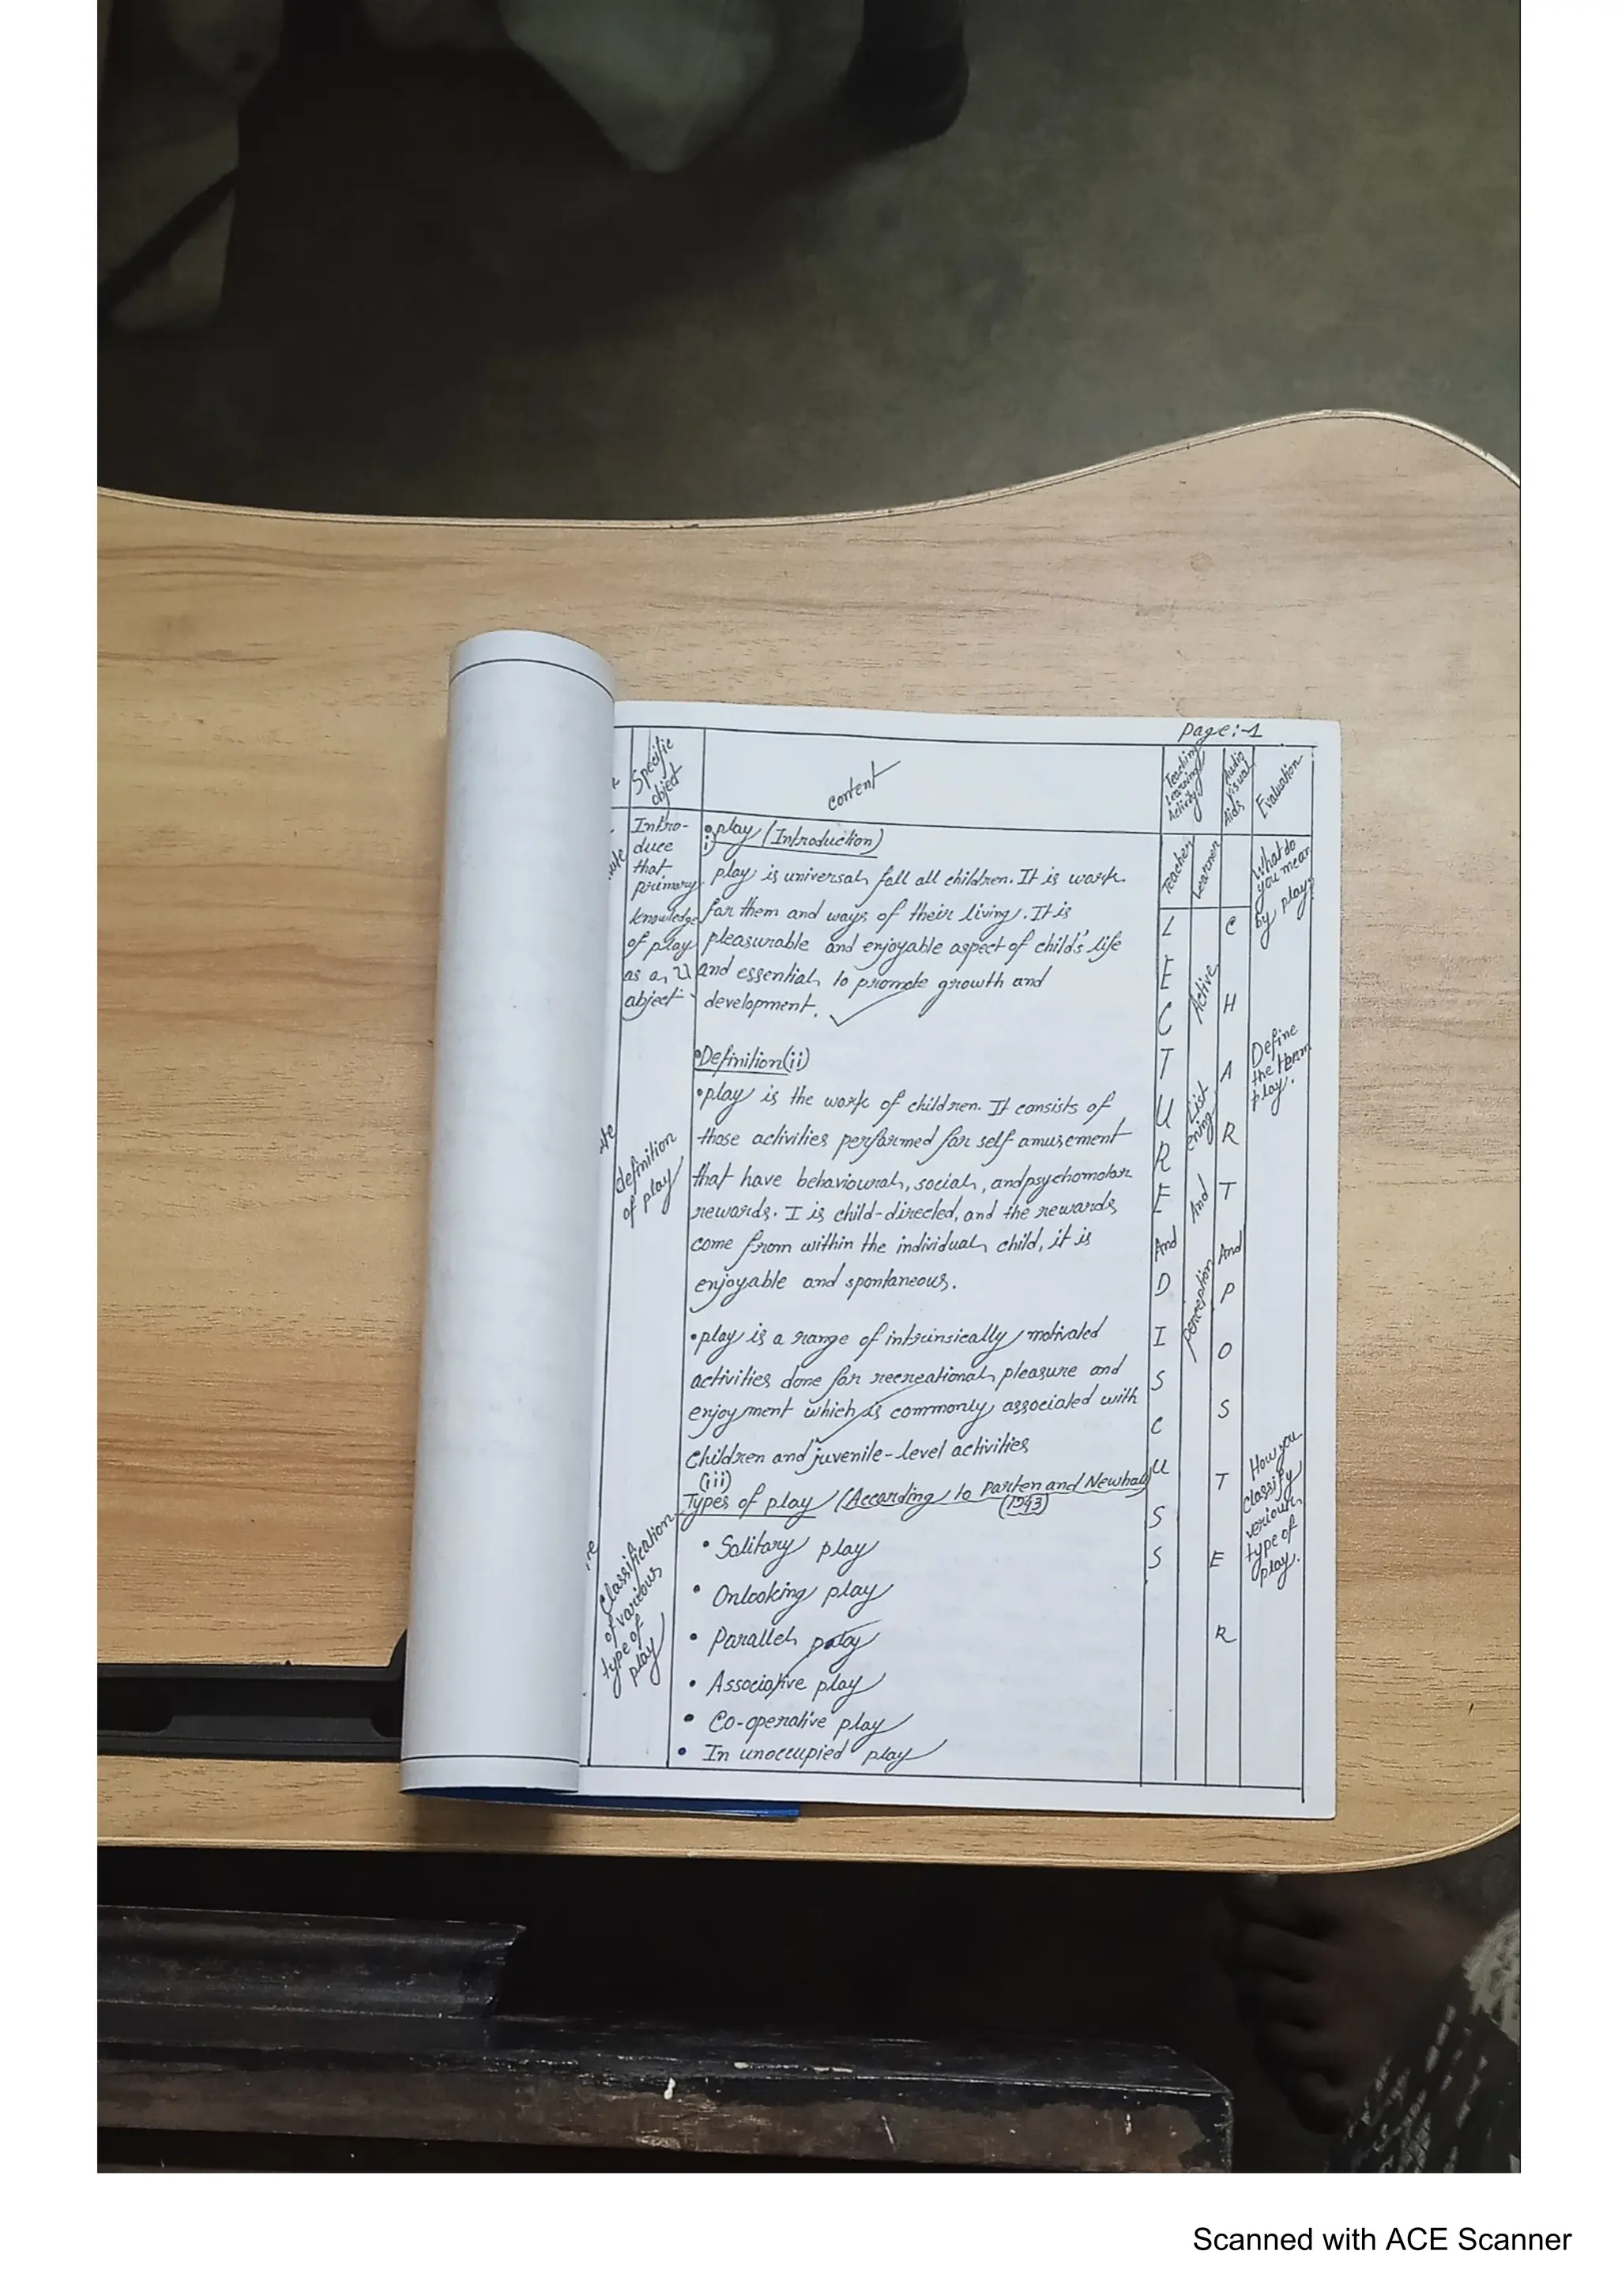 Page:-1
Specific object
content
Teaching Learning Activity
Audio visual Aids
Evaluation
Teacher
Learner
Intro-
duce
that
primary
knowledge
of play
as a
object
• play (Introduction)
i)
play is universal fall all children. It is work
for them and ways of their living. It is
pleasurable and enjoyable aspect of child's life
and essential to promote growth and
development.
• Definition(ii)
• play is the work of children. It consists of
those activities performed for self amusement
that have behavioural, social, and psychomotor
rewards. I is child-directed, and the rewards
come from within the individual child, it is
enjoyable and spontaneous.
• play is a range of intrinsically motivated
activities done for recreational pleasure and
enjoyment which is commonly associated with
children and juvenile-level activities
(iii)
Types of play (According to Parten and Newhall
(1943)
• Solitary play
• Onlooking play
• Parallel play
• Associative play
• Co-operative play
• In unoccupied play
definition
of play
Classification
of various
type of
play
LECTURE And DISCUSS
Active
List
ening
And
perception
CHART And POSTER
What do
you mean
by play?
Define
the term
play.
How you
classify
veriour
type of
play.
Scanned with ACE Scanner